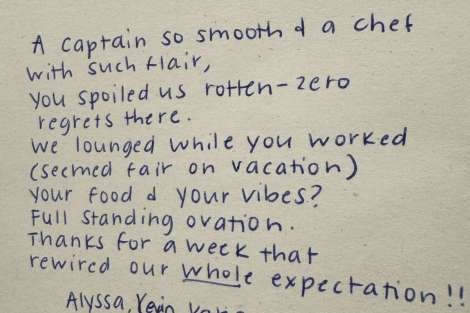 A captain so smooth & a chef
with such flair,
you spoiled us rotten-zero
regrets there.
we lounged while you worked
(seemed fair on vacation)
your food & your vibes?
Full standing ovation.
Thanks for a week that
rewired our whole expectation!!
Alyssa, Kevin